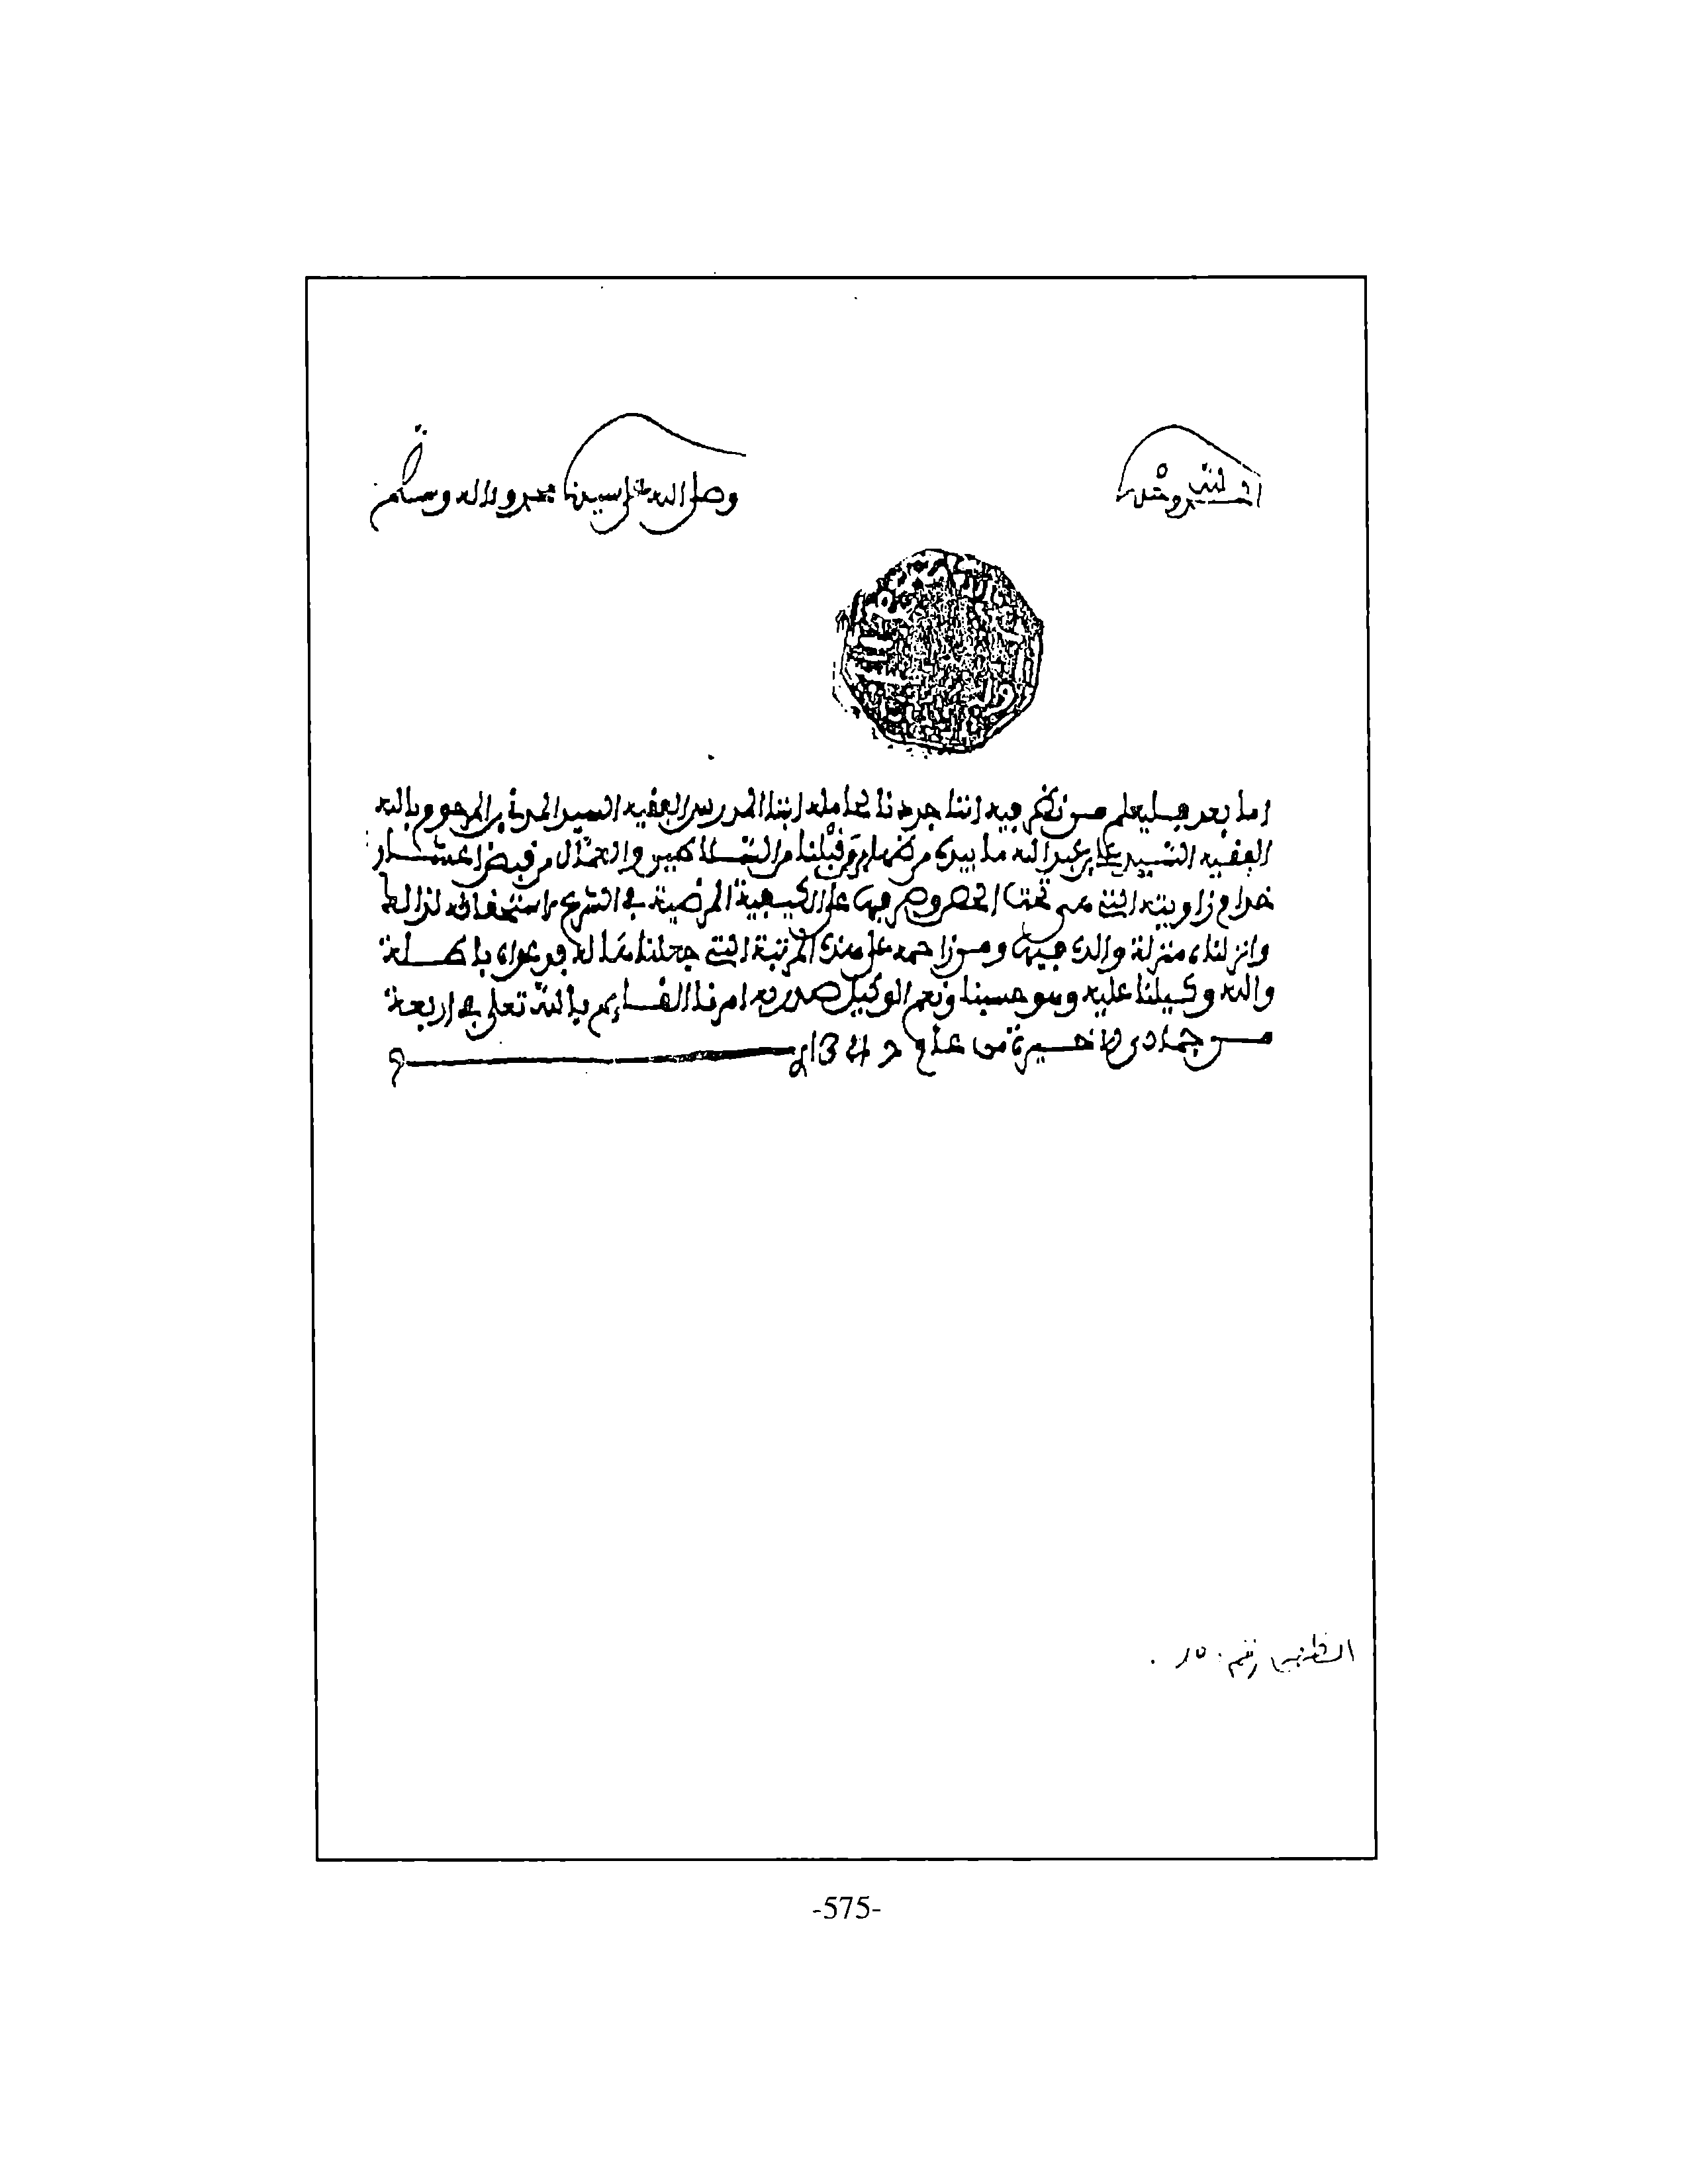 الحمد لله وحده
وصلى الله على سيدنا محمد وءاله وسلم
اما بعد فليعلم من نظر فيه اننا جددنا لحامله ابننا المدرس الفقيه السيد المدني بن المرحوم بالله
الفقيه السيد علي بن عبد الله ما بيده من قبلنا من السلاطين والعمال من قبض اعشار
خدام زاويته التي هي تحت الخصوص فيها على الكيفية المرضية في الشرع استحقاقه لذالك
وانزلناه منزلة والده فيها ومن زاحمه على هذه المرتبة التي جعلناها له فدعواه باطلة
والله وكيلنا عليه وهو حسبنا ونعم الوكيل صدر به امرنا القائم بالله تعلى في اربعة
من جمادى الاخيرة من عام
الظهير رقم
-575-